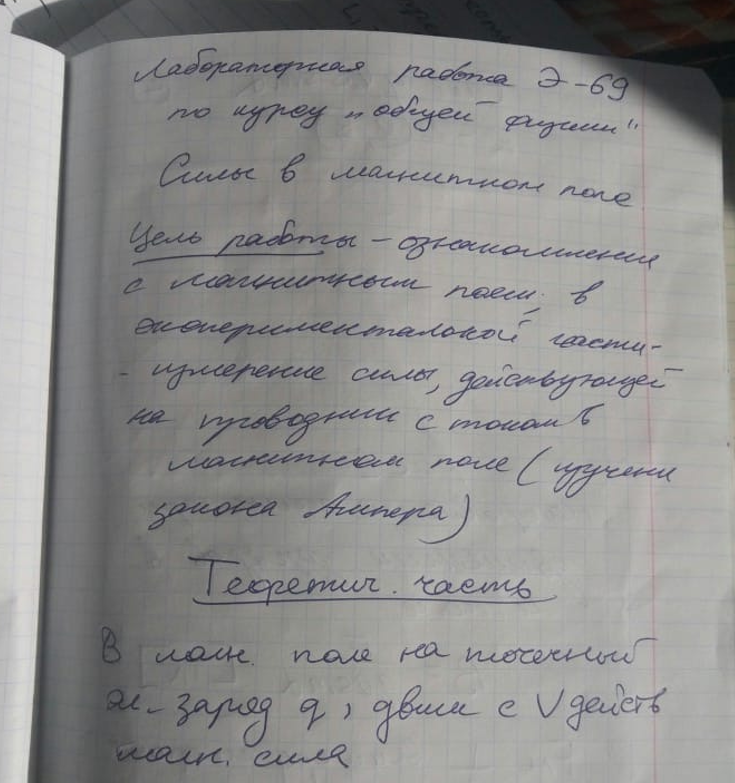 Лабораторная работа Э-69
по курсу „общей физики"
Силы в магнитном поле
Цель работы - ознакомление
с магнитным полем; в
экспериментальной части-
- измерение силы, действующей
на проводник с током в
магнитном поле (изучени
закона Ампера)
Теоретич. часть
В магн. поле на точечный
эл. заряд q, движ с V действ
магн. сила